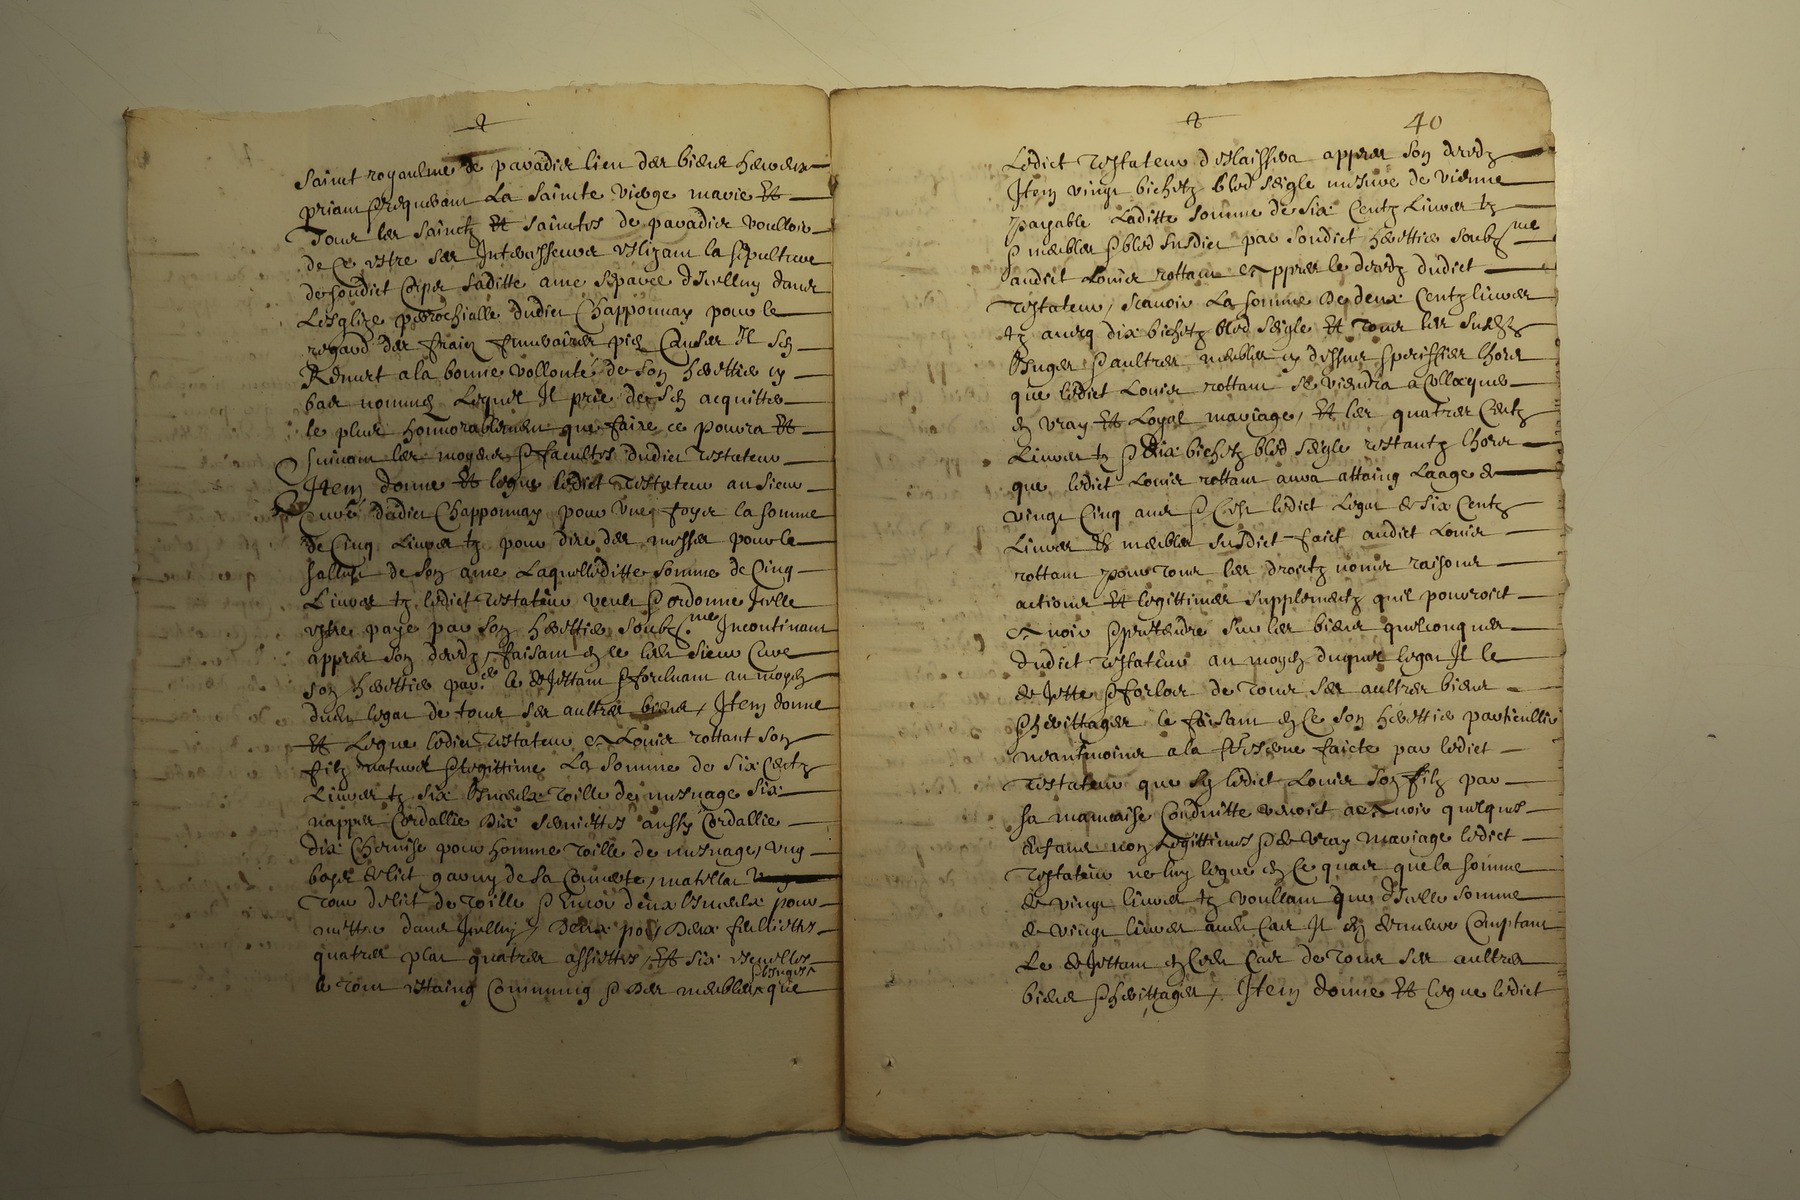 sainct royaulme de paradis lieu des biens heureux
priant & requerant La saincte vierge marie Et
Tous les sainctz Et sainctes de paradis voulloir
de Ce estre ses Intercesseurs eslizant la sepulture
de sondict Corps saditte ame separee d'Icelluy dans
L'esglize parrochialle dudict Chapponnay pour le
regard des fraiz funeraires pies Causes Il s'en
Remect a la bonne vollonté de son heretier cy
bas nommé Lequel Il prie de s'en acquitter
le plus honnorablement que faire ce pourra Et
suivant les moyens & facultes dudict testateur
Item donne Et legue ledict Testateur au sieur
Curé dudict Chapponnay pour une foys la somme
de Cinq Livres tz pour dire des messes pour le
sallut de son ame Laquelleditte somme de Cinq
Livres tz ledict Testateur veult & ordonne Icelle
estre paye par son heretier soubz.né Incontinant
appres son decedz, faisant en ce led. sieur Curé
son heretier par.er le dejettant & forcluant au moyen
dud. legat de tous ses aultres biens, Item donne
Et Legue ledict Testateur a Louis rottant son
filz naturel & legittime La somme de six Centz
Livres tz six linceulx toille de mesnage six
nappes Cordallie dix serviettes aussy Cordallie
dix Chemise pour homme toille de mesnage, ung
boys de lict garny de sa Couverte, matellas
Tour de lict de toille & Encor deux linceulx pour
mettre dans Icelluy, Deux potz Deux feulliettes
quatres platz quatres assiettes, Et six escuelles
le tout estaing Commung & Des meubles & linges que
40
Ledict Testateur deslaissera appres son decedz
Item vingt bichetz bled seigle mesure de vienne
payable Laditte somme de six Centz Livres tz
& meubles & bled susdict par sondict heretier soubz.né
audict Louis rottant appres le decedz dudict
Testateur, scavoir La somme de deux Centz livres
tz avecq dix bichetz bled seigle Et tous les susd.
linges & aultres meubles cy dessus speciffies lhors
que ledict Louis rottant se viendra a Collocquer
en vray Et Loyal mariage, Et les quatres Centz
Livres tz & dix bichetz bled seigle restantz lhors
que ledict Louis rottant aura attaing Laage de
vingt Cinq ans & C'est ledict Legat de six Centz
Livres & meubles susdict faict audict Louis
rottant pour tous les droictz noms raisons
actions Et legittimes supplementz quil pourroict
avoir & pretendre sur les biens quelconques
dudict testateur au moyen duquel legat Il le
dejette & forclos de tous ses aultres biens
& herittages le faisant en Ce son heretier particullier
neantmoins a la reserve faicte par ledict
Testateur que sy ledict Louis son filz par
sa mauvaise Conduitte venoict a avoir quelques
enfans non Legittimes & de vray mariage ledict
Testateur ne luy legue en Ce quas que la somme
de vingt livres tz voullant que d'Icelle somme
de vingt livres aud. Cas Il en demeure Comptant
Le dejettant en Ced. Cas de tous ses aultres
biens & herittages, Item donne Et legue ledict